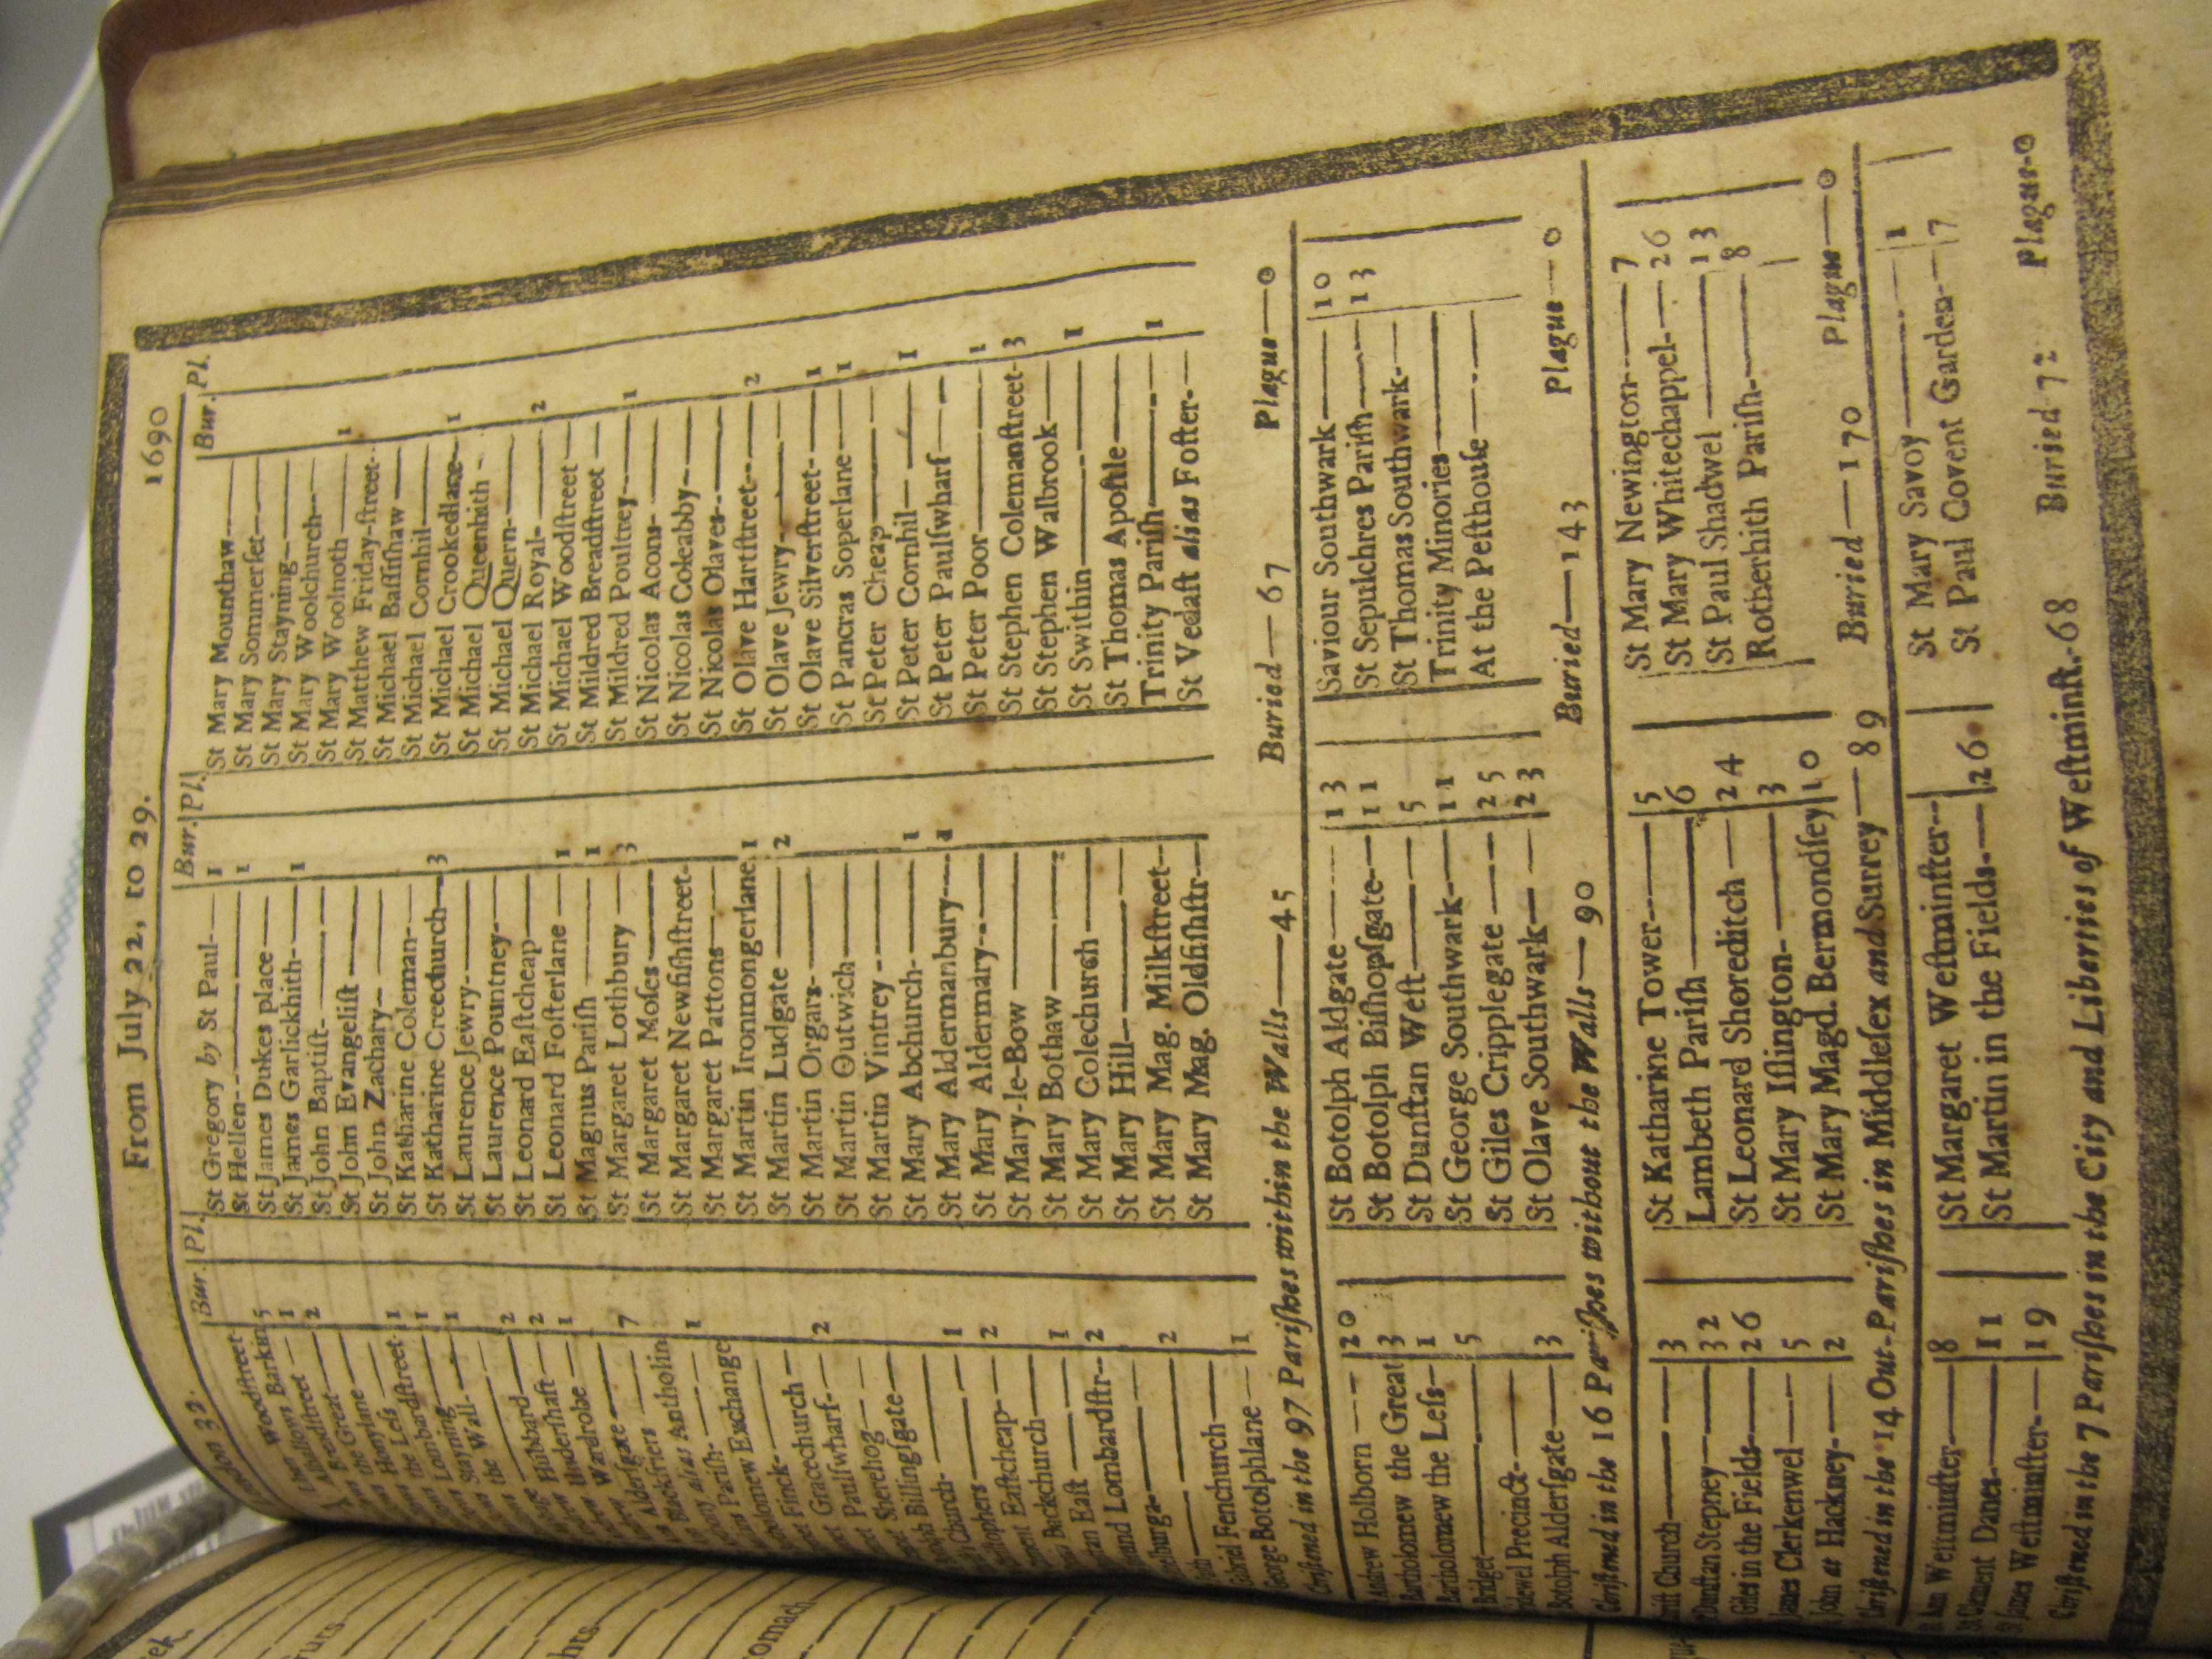 London 32. From July 22, to 29. 1690
Bur. Pl. Bur. Pl. Bur. Pl.
Woodstreet
Barkin 5
Breadstreet 1
Great 2
Honylane
the Less
Lombardstreet 1
Stayning 1
the Wall 1
Hubbard 2
Undershaft 2
Wardrobe 1
Aldersgate
Blackfriers 7
alias Antholin
Parish 1
Exchange
Finck
Gracechurch
Paulswharf 2
Sherehog
Billingsgate
Church 1
2
Eastcheap
Backchurch 1
East 2
Lombardstr
2
Fenchurch
George Botolphlane 1
St Gregory by St Paul 1
St Hellen 1
St James Dukes place
St James Garlickhith 1
St John Baptist
St John Evangelist
St John Zachary
St Katharine Coleman
St Katharine Creechurch 3
St Laurence Jewry
St Laurence Pountney
St Leonard Eastcheap
St Leonard Fosterlane 1
St Magnus Parish 1
St Margaret Lothbury 3
St Margaret Moses
St Margaret Newfishstreet
St Margaret Pattons
St Martin Ironmongerlane 1
St Martin Ludgate 2
St Martin Orgars
St Martin Outwich
St Martin Vintrey
St Mary Abchurch 1
St Mary Aldermanbury 1
St Mary Aldermary
St Mary-le-Bow
St Mary Bothaw
St Mary Colechurch
St Mary Hill
St Mary Mag. Milkstreet
St Mary Mag. Oldfishstr
St Mary Mounthaw
St Mary Sommerset
St Mary Stayning
St Mary Woolchurch
St Mary Woolnoth 1
St Matthew Friday-street
St Michael Bassishaw
St Michael Cornhil
St Michael Crookedlane 1
St Michael Queenhith
St Michael Quern
St Michael Royal 2
St Michael Woodstreet
St Mildred Breadstreet
St Mildred Poultney 1
St Nicolas Acons
St Nicolas Coleabby
St Nicolas Olaves
St Olave Hartstreet 2
St Olave Jewry
St Olave Silverstreet 1
St Pancras Soperlane 1
St Peter Cheap
St Peter Cornhil 1
St Peter Paulswharf
St Peter Poor 1
St Stephen Colemanstreet 3
St Stephen Walbrook
St Swithin 1
St Thomas Apostle
Trinity Parish 1
St Vedast alias Foster
Cristned in the 97 Parishes within the Walls—45 Buried—67 Plague—0
Andrew Holborn 20
Bartholomew the Great 3
Bartholomew the Less 1
Bridget 5
Precinct
Botolph Aldersgate 3
St Botolph Aldgate 13
St Botolph Bishopsgate 11
St Dunstan West 5
St George Southwark 11
St Giles Cripplegate 25
St Olave Southwark 23
Saviour Southwark 10
St Sepulchres Parish 13
St Thomas Southwark
Trinity Minories
At the Pesthouse
Cristned in the 16 Parishes without the Walls—90 Buried—143 Plague—0
Church 3
Dunstan Stepney 32
Giles in the Fields 26
James Clerkenwel 5
John at Hackney 2
St Katharine Tower 5
Lambeth Parish 6
St Leonard Shoreditch 24
St Mary Islington 3
St Mary Magd. Bermondsey 10
St Mary Newington 7
St Mary Whitechappel 26
St Paul Shadwel 13
Rotherhith Parish 8
Cristned in the 14 Out-Parishes in Middlesex and Surrey—89 Buried—170 Plague—0
Ann Westminster 8
Clement Danes 11
James Westminster 19
St Margaret Westminster
St Martin in the Fields 26
St Mary Savoy 1
St Paul Covent Garden 7
Cristned in the 7 Parishes in the City and Liberties of Westminst.-68 Buried 72 Plague-0